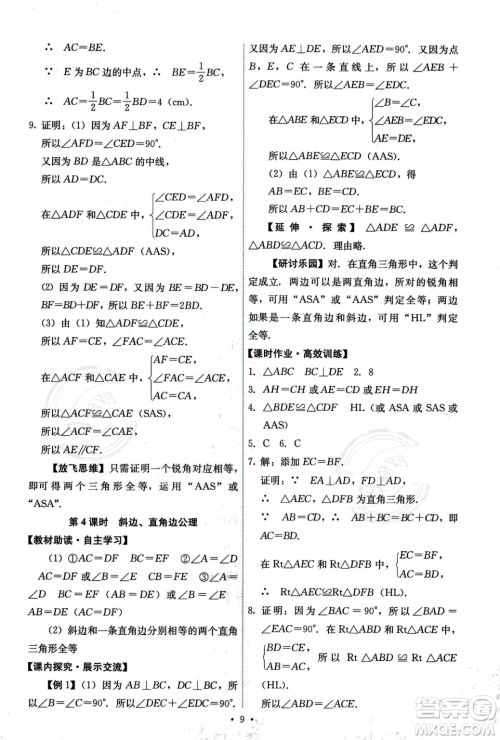 ∴　AC=BE.
∵　E 为 BC 边的中点，∴　BE=1/2BC
∴　AC=1/2BC=1/2BD=4 (cm).
9. 证明：(1) 因为 AF⊥BF，CE⊥BF，
所以∠AFD=∠CED=90°.
又因为 BD 是△ABC 的中线，
所以 AD=DC.
在△ADF 和△CDE 中 { ∠CED=∠AFD,
∠CDE=∠ADF,
AD=DC.
所以△ADF≌△CDE (AAS).
(2) 因为△ADF≌△CDE，所以 DF=DE.
BF=BD+DF，BE=BD-DE，
所以 BF+BE=2BD.
(3) 由 (1) 知：△ADF≌△CDE
在△ACF 和△CAE 中 { CE=AF,
∠ECA=∠CAF,
AC=CA.
所以△ACF≌△CAE (SAS).
所以∠ACF=∠CAE,
所以 AE∥CF.
【放飞思维】只需证明一个锐角对应相等，
即可得两个三角形全等，可以用“AAS”或
“ASA”.
第 4 课时　斜边、直角边公理
【教材助读·自主学习】
(1) ①AC=DF　BC=EF　②AB=DE
AC=DF　③AB=DE　BC=EF　④AC=DF
AB=DE
(2) 斜边和一条直角边分别相等的两个直
角三角形全等
【课内探究·展示交流】
【例 1】(1) 因为 AD⊥BC，AE⊥DE，
所以∠ADB=∠ADC=90°，∠AED=90°.
又因为 AE⊥DE，所以∠AED=90°. 因为点
B，E，C 在一条直线上，所以∠AEB+
∠DEC=90°. 所以∠BAE=∠EDC.
在△ABE 和△ECD 中 { ∠B=∠C,
∠BAE=∠EDC,
AE=DE.
所以△ABE≌△ECD (AAS).
(2) 由 (1) 可知△ABE≌△ECD，得
AB=EC，BE=CD.
所以 AB+CD=EC+BE=BC.
【延伸·探索】△ADE ≌ △ADF，
△ABD≌△ACD. 理由略.
【研讨乐园】在直角三角形中，这个判
定成立. 两边可以是两直角边，所对的锐角相
等，可用“ASA”或“AAS”判定全等；两边
如果是一条直角边和斜边，可用“HL”判定全
等.
【课时作业·高效训练】
1. △ABC　HL　2. 8
3. AH=CH 或 AE=CE 或 EH=DH
4. △BDE≌△CDF　HL（或 AAS）（答案不
唯一）
5. C　6. C
7. 解：添加 EC=BF.
证明：∵　EA⊥AD，FD⊥AD，
∴　△EAC，△DFB 为直角三角形.
∵　AB=CD，∴　AC=DB.
在 Rt△EAC 和 Rt△DFB 中 { EC=BF,
AC=DB.
∴　Rt△EAC≌Rt△DFB (HL).
8. 证明：因为∠BDC=90°，所以∠BDA=
∠BDC=90°. 在 Rt△ADB 和 Rt△EDC
中，{ BD=CD,
AB=CE. 所以 Rt△ADB≌Rt△EDC
(HL).
所以∠ABD=∠ACE.
· 9 ·
答案圈